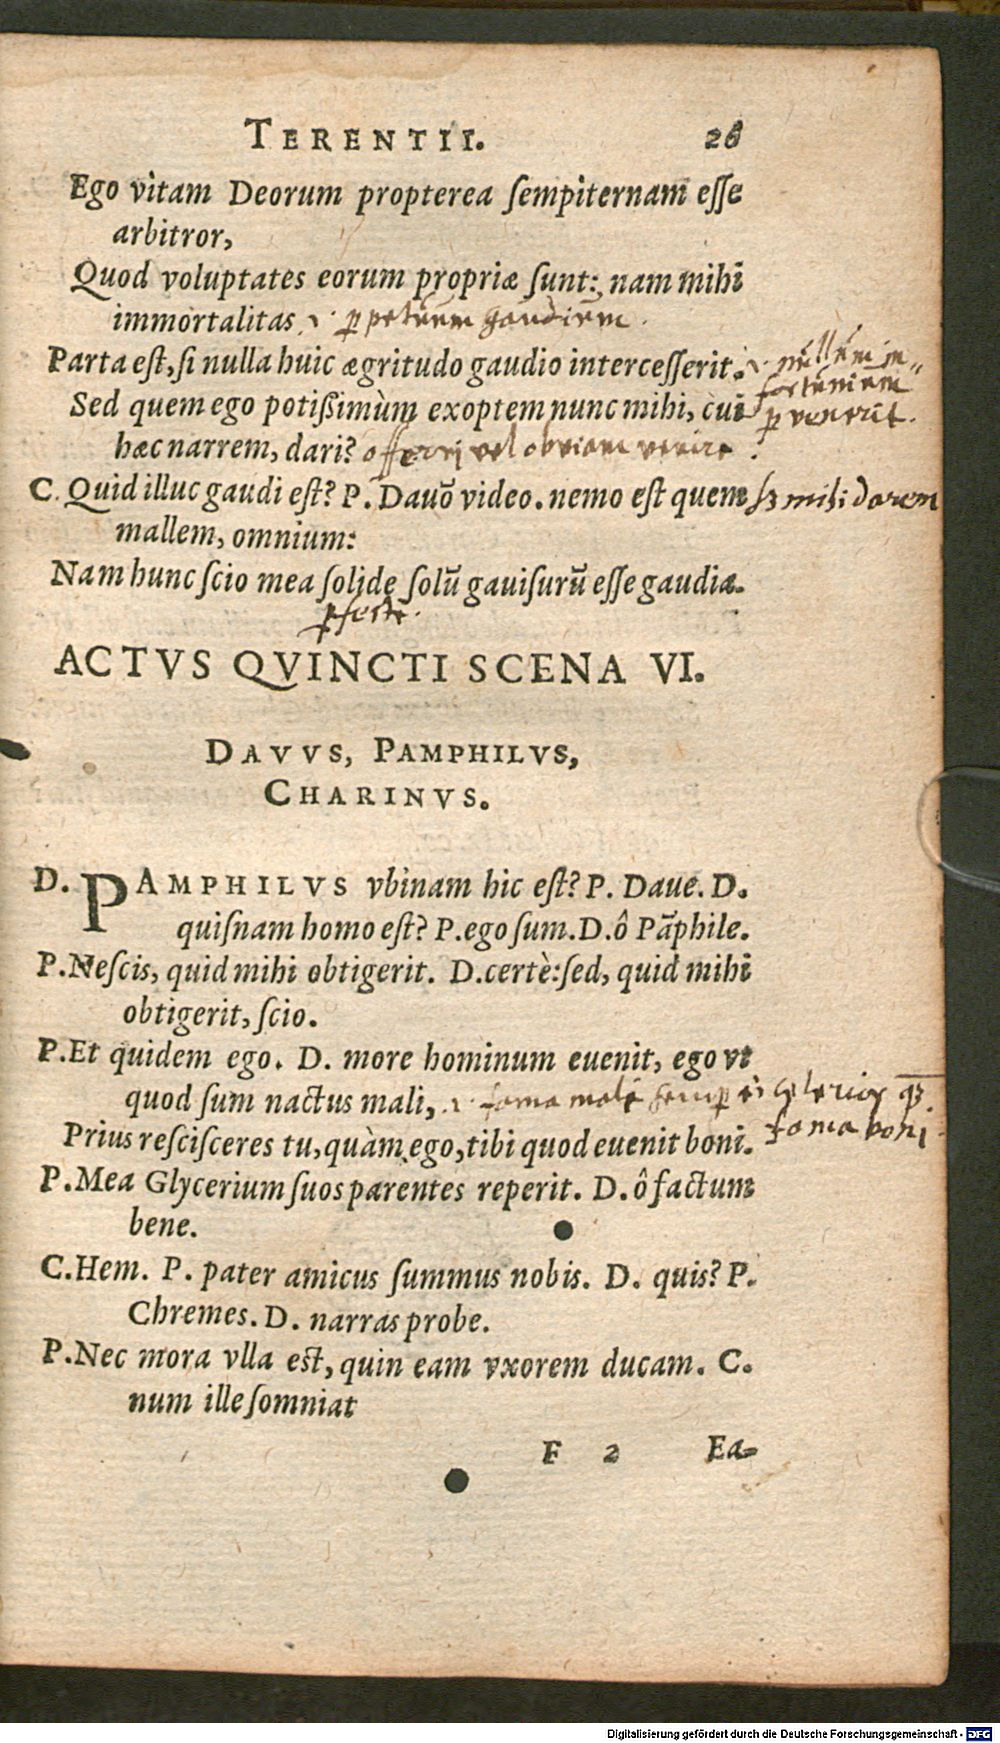 TERENTII. 26
Ego vitam Deorum propterea ſempiternam eſſe
arbitror,
Quod voluptates eorum propriæ ſunt: nam mihi
immortalitas .i. ꝑpetuum gaudium.
Parta eſt, ſi nulla huic ægritudo gaudio interceſſerit. .i. nullum in„
fortunium
Sed quem ego potißimùm exoptem nunc mihi, cui ꝑvenerit.
hæc narrem, dari? offerri vel obviam venire.
C. Quid illuc gaudi eſt? P. Dauõ video. nemo eſt quem mihi darem
mallem, omnium:
Nam hunc ſcio mea ſolide ſolũ gauiſurũ eſſe gaudia.
ꝑfecte.
ACTVS QVINCTI SCENA VI.
DAVVS, PAMPHILVS,
CHARINVS.
D. PAMPHILVS vbinam hic eſt? P. Daue. D.
quiſnam homo eſt? P. ego ſum. D. ô Pãphile.
P. Neſcis, quid mihi obtigerit. D. certè: ſed, quid mihi
obtigerit, ſcio.
P. Et quidem ego. D. more hominum euenit, ego vt
quod ſum nactus mali, .i. fama mali semꝑ
fama boni
Prius reſciſceres tu, quàm ego, tibi quod euenit boni.
P. Mea Glycerium ſuos parentes reperit. D. ô factum
bene.
C. Hem. P. pater amicus ſummus nobis. D. quis? P.
Chremes. D. narras probe.
P. Nec mora vlla est, quin eam vxorem ducam. C.
num ille ſomniat
F 2 Ea-
Digitalisierung gefördert durch die Deutsche Forschungsgemeinschaft - DFG